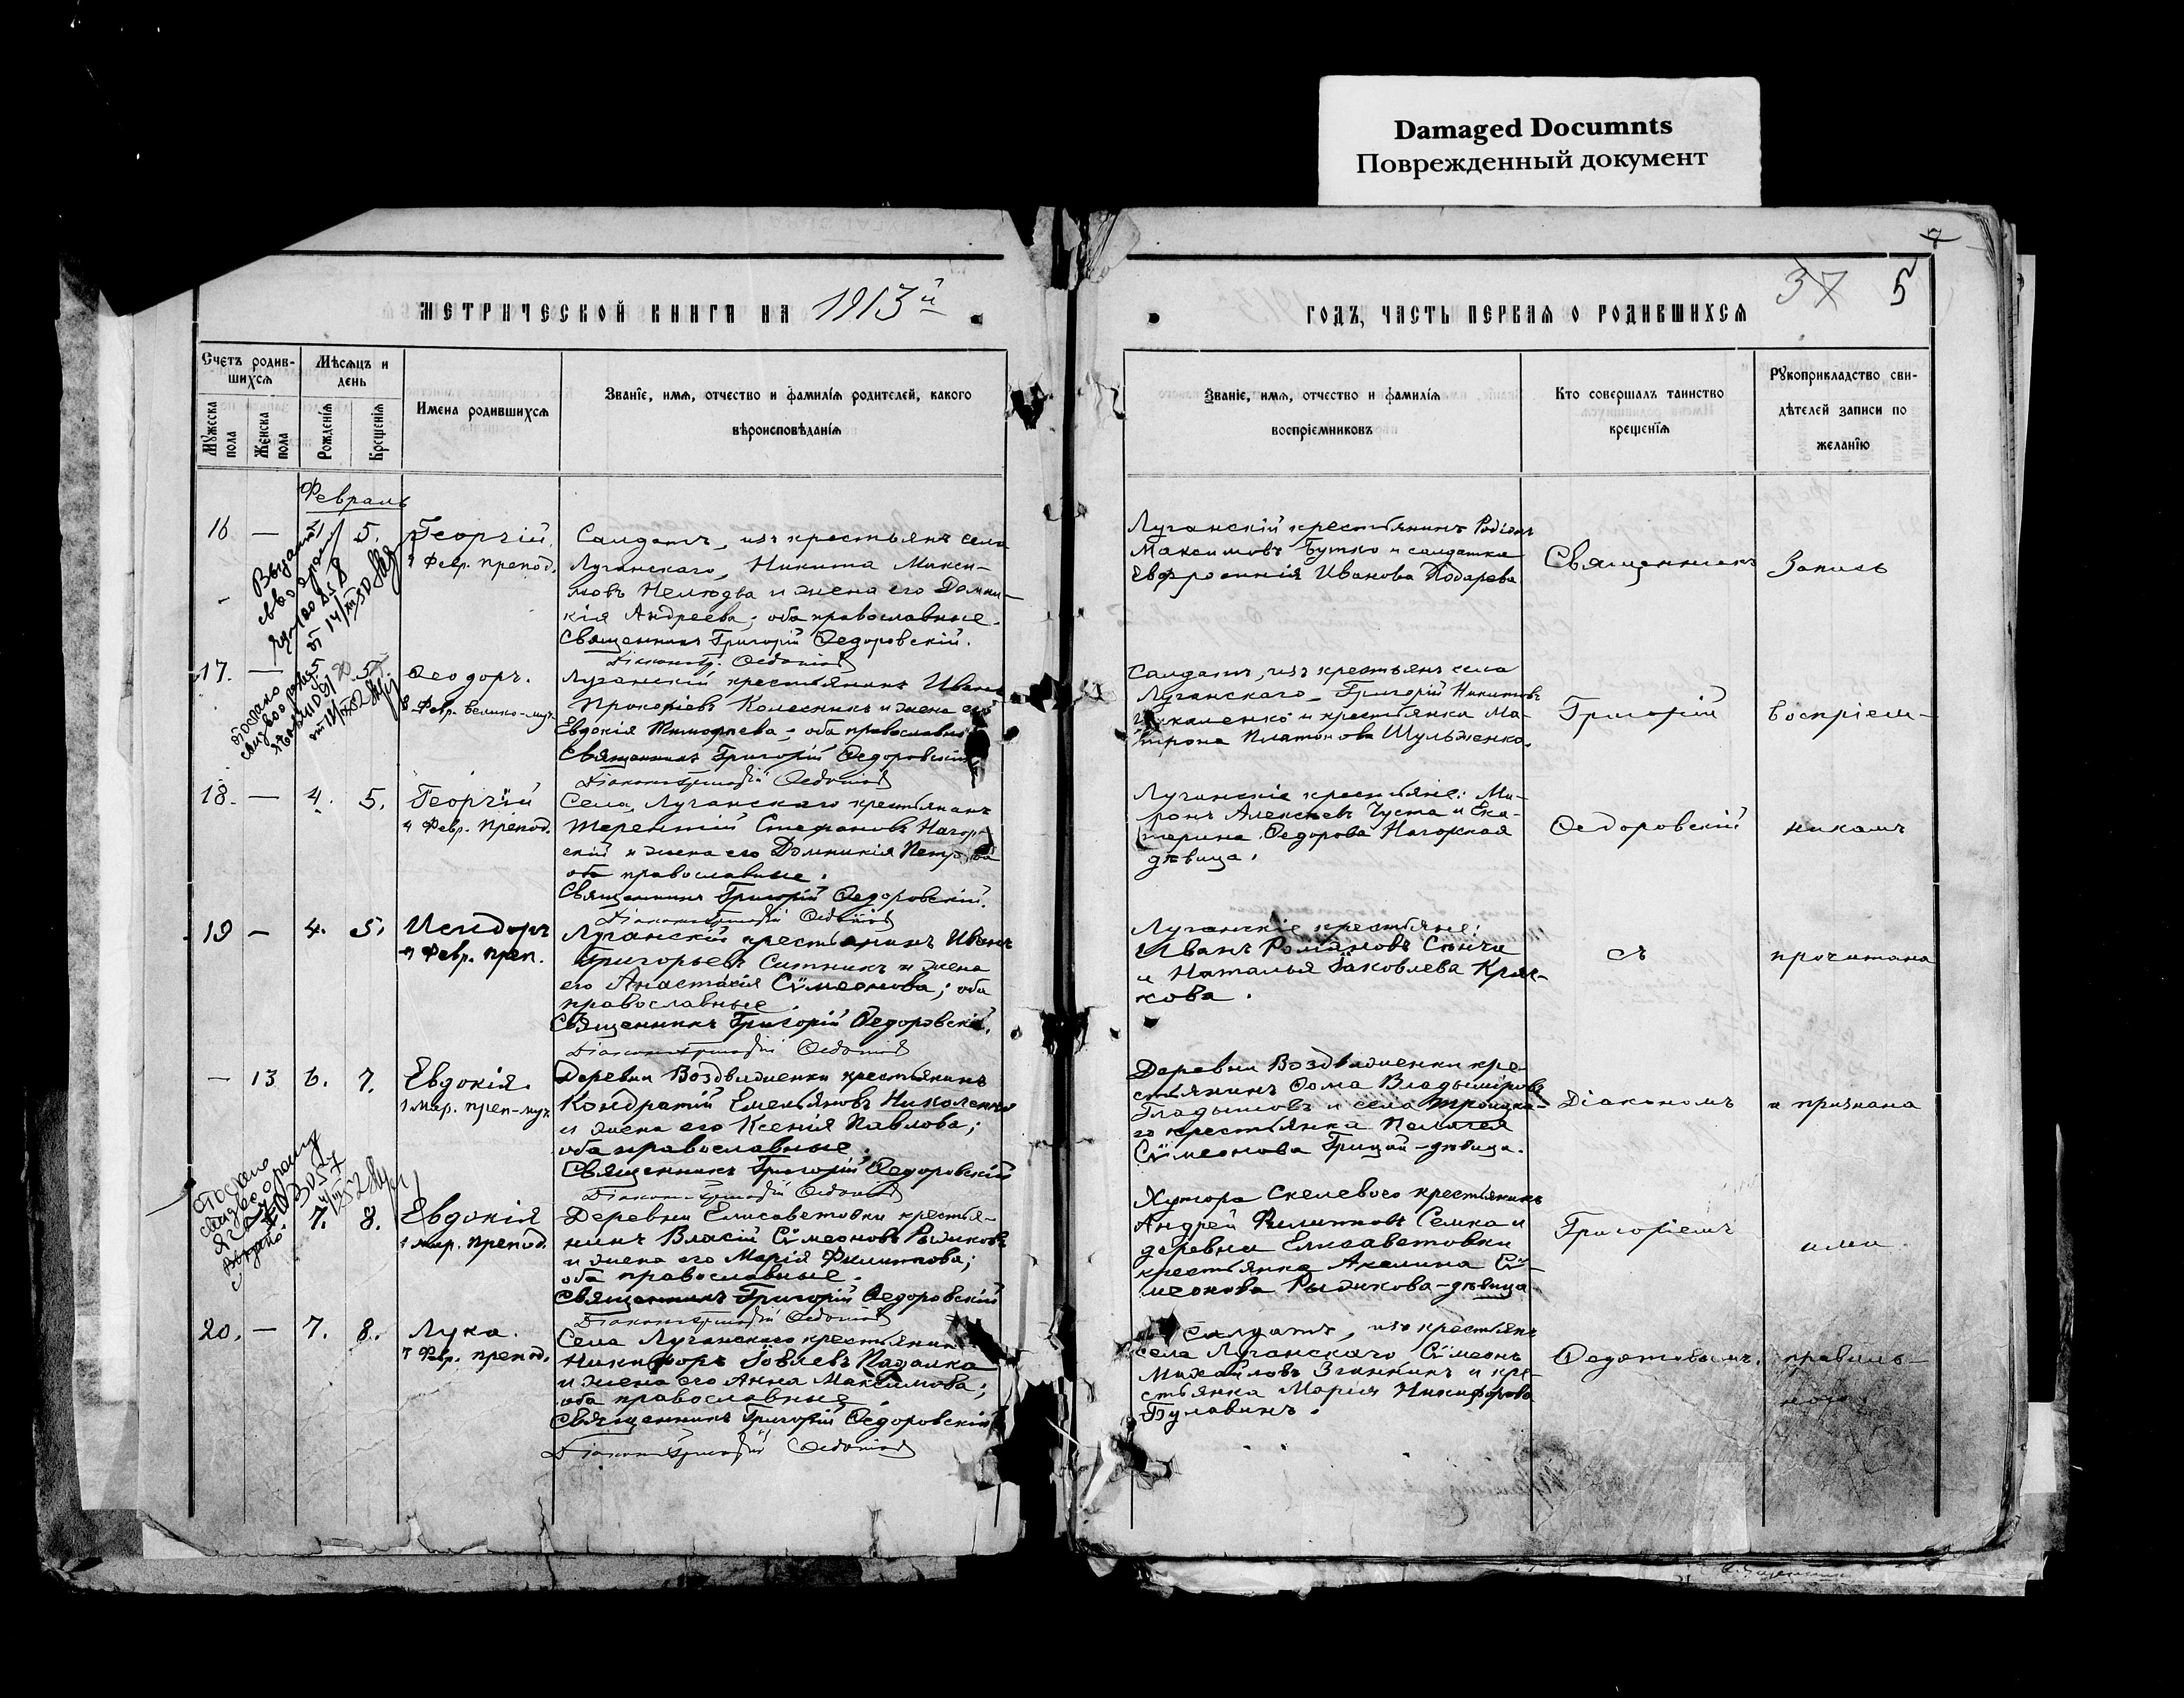 Damaged Documnts
Поврежденный документ
7
37 5
МЕТРИЧЕСКОЙ КНИГИ НА 1913й
ГОДЪ, ЧАСТЬ ПЕРВАЯ О РОДИВШИХСЯ
Счетъ родив-
шихся
Мужеска пола
Женска пола
Мѣсяцъ и
день
Рожденія
Крещенія
Имена родившихся
Званіе, имя, отчество и фамилія родителей, какого
вѣроисповѣданія
Званіе, имя, отчество и фамилія
воспріемниковъ
Кто совершалъ таинство
крещенія
Рукоприкладство сви-
дѣтелей записи по
желанію
Февраль
16 — 5. Георгій.
4 Февр. препод.
Солдатъ, изъ крестьянъ села
Луганскаго, Никита Макси-
мовъ Нелюдва и жена его Домни-
кія Андреева; оба православные.
Священникъ Григорій Ѳедоровскій.
Луганскій крестьянинъ Родіонъ
Максимовъ Бутко и солдатка
Евфросинія Иванова
Священникъ
Запись
17. — 5. Ѳеодоръ.
8 Февр. велико-муч.
Луганскій крестьянинъ Иванъ
Прокопіевъ Колесникъ и жена его
Евдокія Тимофеева; оба православные
Священникъ Григорій Ѳедоровскій
Солдатъ, изъ крестьянъ села
Луганскаго, Григорій Никитовъ
и крестьянка Ма-
трона Платонова Шульженко.
Григорій
воспріем-
18. — 4. 5. Георгій
4 Февр. препод.
Села Луганскаго крестьянинъ
Терентій Стефановъ Нагор-
скій и жена его Домникія Петрова
оба православные.
Священникъ Григорій Ѳедоровскій.
Луганскіе крестьяне: Ми-
ронъ Алексѣевъ Чуста и Ека-
терина Ѳедорова Нагорская
дѣвица.
Ѳедоровскій
никамъ
19 — 4. 5. Исидоръ
4 Февр. преп.
Луганскій крестьянинъ Иванъ
Григорьевъ Ситникъ и жена
его Анастасія Сѵмеонова; оба
православные
Священникъ Григорій Ѳедоровскій.
Луганскіе крестьяне:
Иванъ Романовъ Сѣнча
и Наталья Іаковлева Крюч-
кова.
съ
прочитана
— 13 6. 7. Евдокія.
1 мар. преп-муч.
Деревни Воздвиженки крестьянинъ
Кондратій Емельяновъ Николенко
и жена его Ксенія Павлова;
оба православные.
Священникъ Григорій Ѳедоровскій
Деревни Воздвиженки кре-
стьянинъ Ѳома Владыміровъ
Гладышовъ и села Троицка-
го крестьянка Пелагея
Сѵмеонова Грицай-дѣвица.
Діакономъ
и признана
7. 8. Евдокія
1 мар. препод.
Деревни Елисаветовки крестья-
нинъ Власій Сѵмеоновъ Рыжковъ
и жена его Марія Филиппова;
оба православные.
Священникъ Григорій Ѳедоровскій
Хутора Скелевого крестьянинъ
Андрей Филипповъ Семка и
деревни Елисаветовки
крестьянка Акилина Сѵ-
меонова Рыжкова-дѣвица
Григоріемъ
ими
20. — 7. 8. Лука.
7 Февр. препод.
Села Луганскаго крестьянинъ
Никифоръ Іовлевъ Падалка
и жена его Анна Максимова;
оба православные
Священникъ Григорій Ѳедоровскій
Солдатъ, изъ крестьянъ
села Луганскаго Сѵмеонъ
Михайловъ и кре-
стьянка Марія Никифорова
Булавинъ.
Ѳедотовымъ.
правиль-
ною